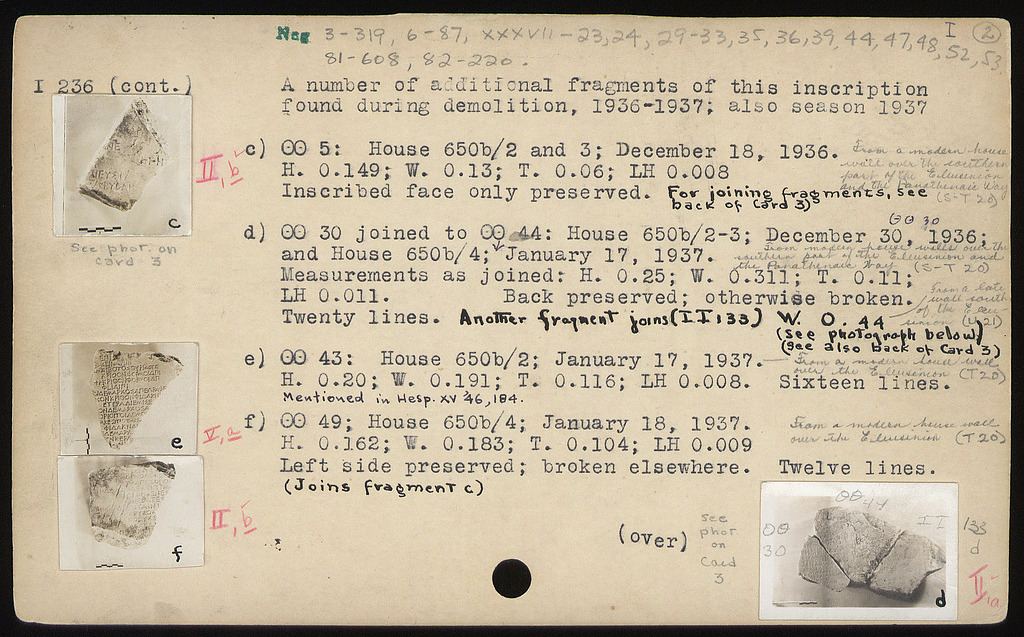 I (2)
Neg 3-319, 6-87, XXXVII-23,24, 29-33, 35, 36, 39, 44, 47, 48, 52, 53
81-608, 82-220.
I 236 (cont.)
A number of additional fragments of this inscription
found during demolition, 1936-1937; also season 1937
II,b
c) ΘΘ 5: House 650b/2 and 3; December 18, 1936.
From a modern house
wall over the southern
part of the Eleusinion
and the Panathenaic Way
(S-T 20)
H. 0.149; W. 0.13; T. 0.06; LH 0.008
Inscribed face only preserved. For joining fragments, see
back of Card 3)
c
See phot. on
card 3
ΘΘ 30
d) ΘΘ 30 joined to ΘΘ 44: House 650b/2-3; December 30, 1936;
and House 650b/4; January 17, 1937.
From modern house walls over the
southern part of the Eleusinion and
the Panathenaic Way (S-T 20)
Measurements as joined: H. 0.25; W. 0.311; T. 0.11;
LH 0.011. Back preserved; otherwise broken.
From a late
wall south
of the Eleu-
sinion (U 21)
Twenty lines. Another fragment joins (II 133) W. 0.44
(see photograph below)
(see also back of Card 3)
e) ΘΘ 43: House 650b/2; January 17, 1937.
From a modern house wall
over the Eleusinion (T 20)
H. 0.20; W. 0.191; T. 0.116; LH 0.008. Sixteen lines.
Mentioned in Hesp. XV '46, 184.
e
V,a
f) ΘΘ 49; House 650b/4; January 18, 1937.
From a modern house wall
over the Eleusinion (T 20)
H. 0.162; W. 0.183; T. 0.104; LH 0.009
Left side preserved; broken elsewhere. Twelve lines.
(Joins fragment c)
II,b
f
(over)
see
phot
on
Card
3
ΘΘ 44
ΘΘ
30
II 133
d
d
II,a